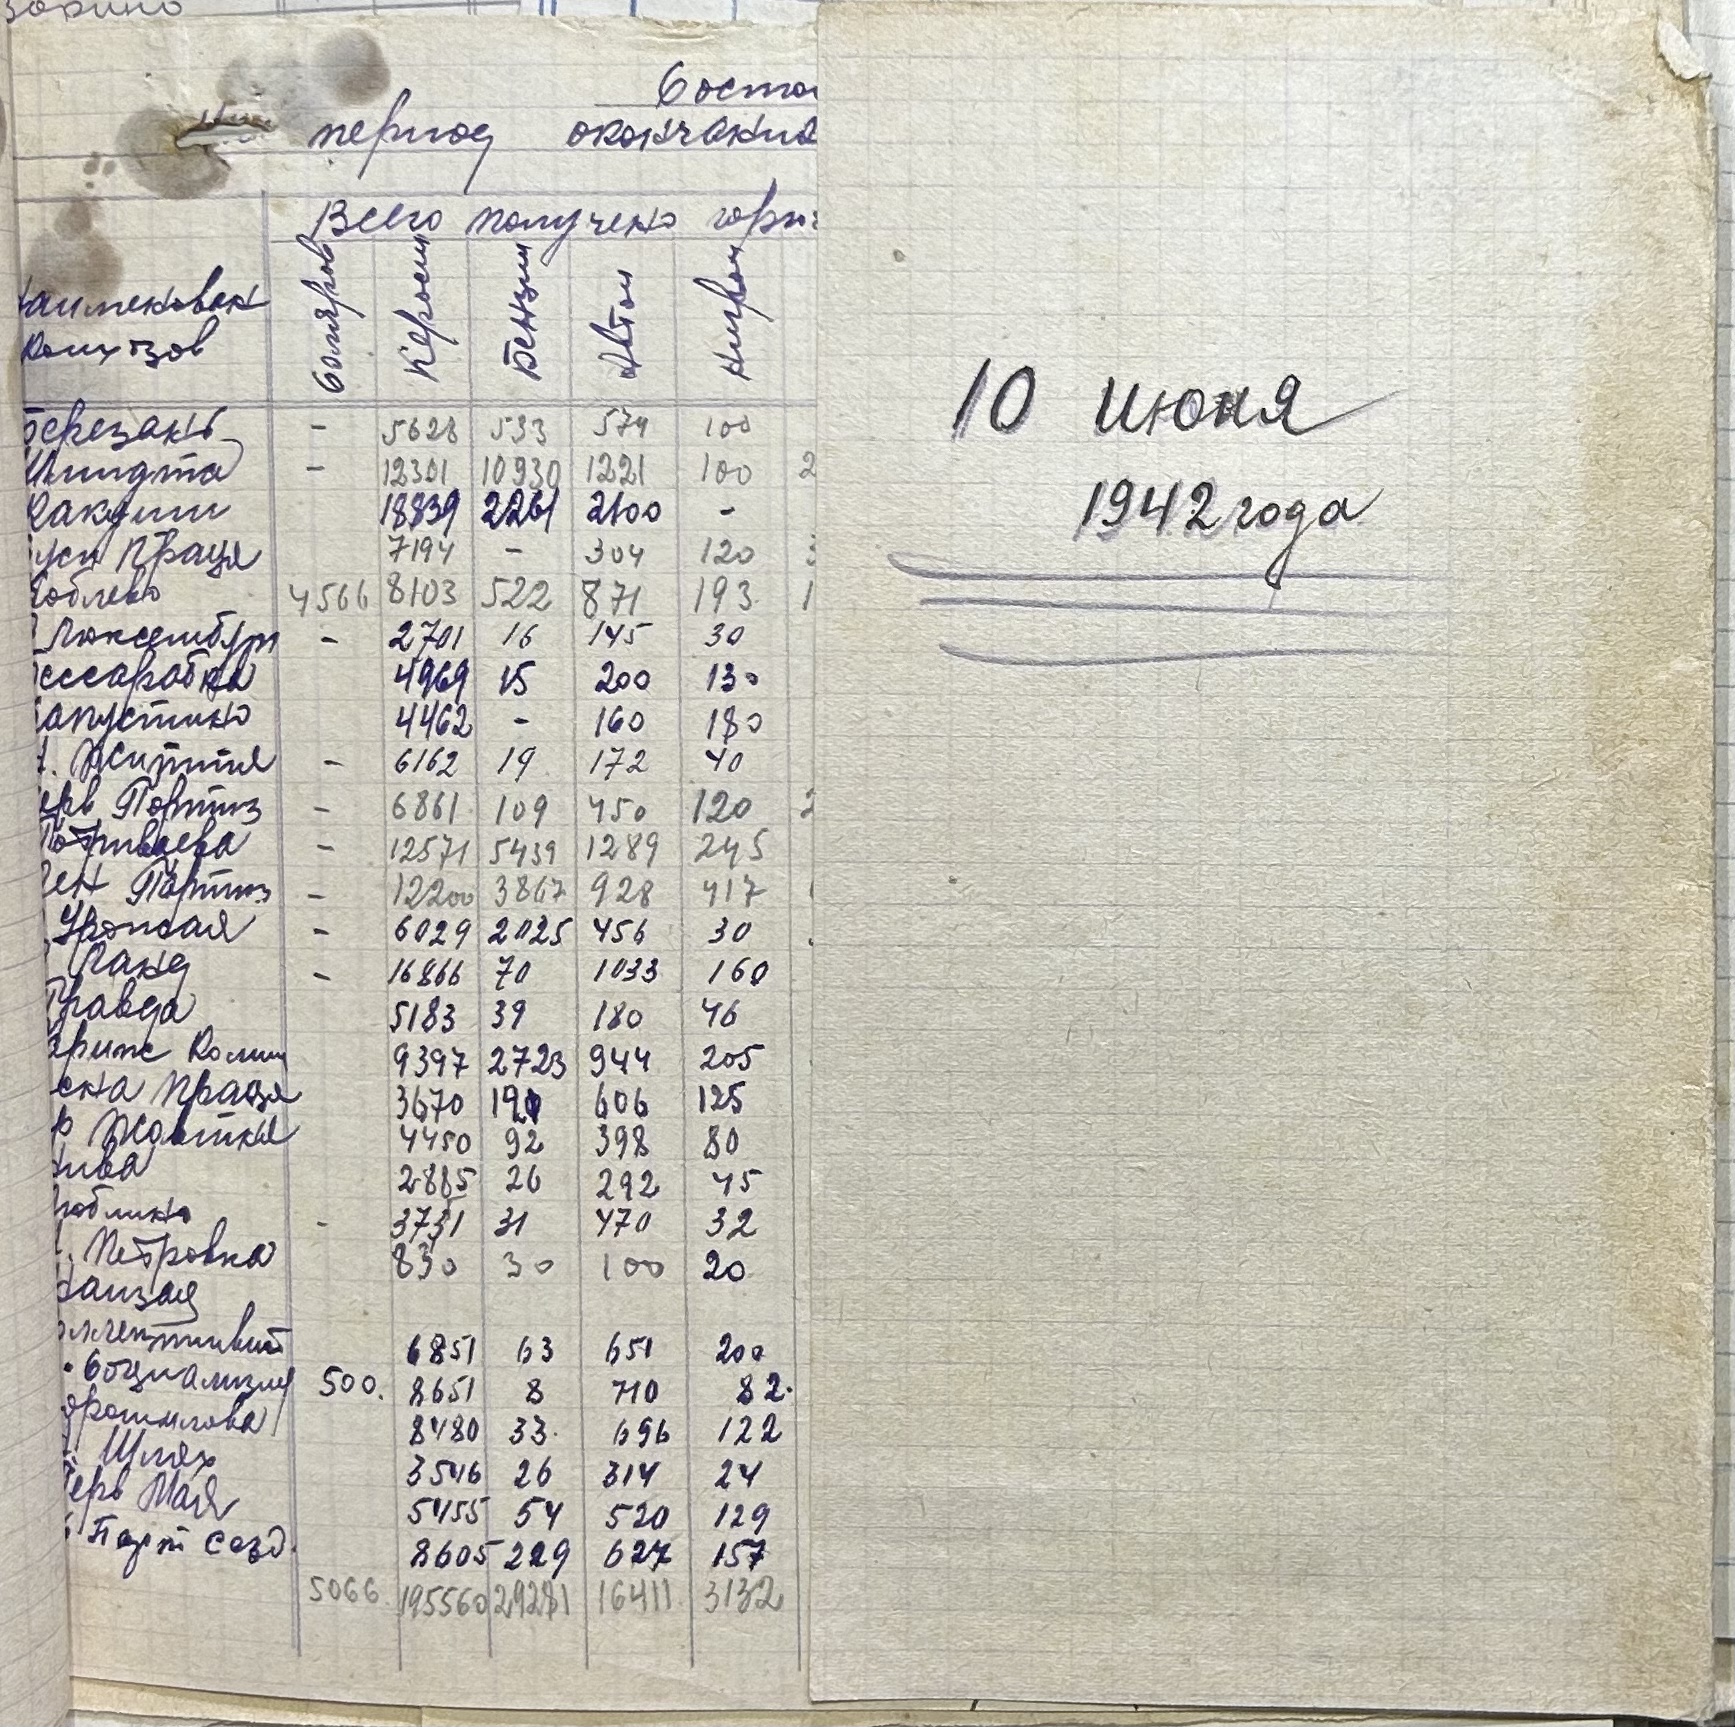 Состо
период окончания
Всего получено горю
Наименован
колхозов
Соляров
Керосин
Бензин
Автол
Нигрол
Березань - 5628 533 574 100
Шмидта - 12301 10930 1221 100 2
18839 2261 2100 -
Праця 7194 - 304 120 3
Коблево 4566 8103 522 871 193 1
Люксембург - 2701 16 145 30
ессарабка 4969 15 200 130
апустино 4462 - 160 180
Життя - 6162 19 172 40
ерв Портиз - 6861 109 450 120 2
Потриваева - 12571 5439 1289 245
ен Портиз - 12200 3867 928 417
Урожая - 6029 2025 456 30
Ланд - 16866 70 1033 160
Правда 5183 39 180 46
ариж Комин 9397 2723 944 205
сна Праця 3670 606 125
р Жовтня 4450 92 398 80
нива 2885 26 292 45
юблино - 3731 31 470 32
Петровка 830 30 100 20
анзая
оллективист 6851 63 651 200
Социализм 500. 8651 8 710 82.
орошилова 8480 33. 696 122
Шлях 3546 26 314 24
Перв Мая 5455 54 520 129
Парт сезд. 8605 229 627 157
5066 195560 29281 16411 3132
10 июня
1942 года